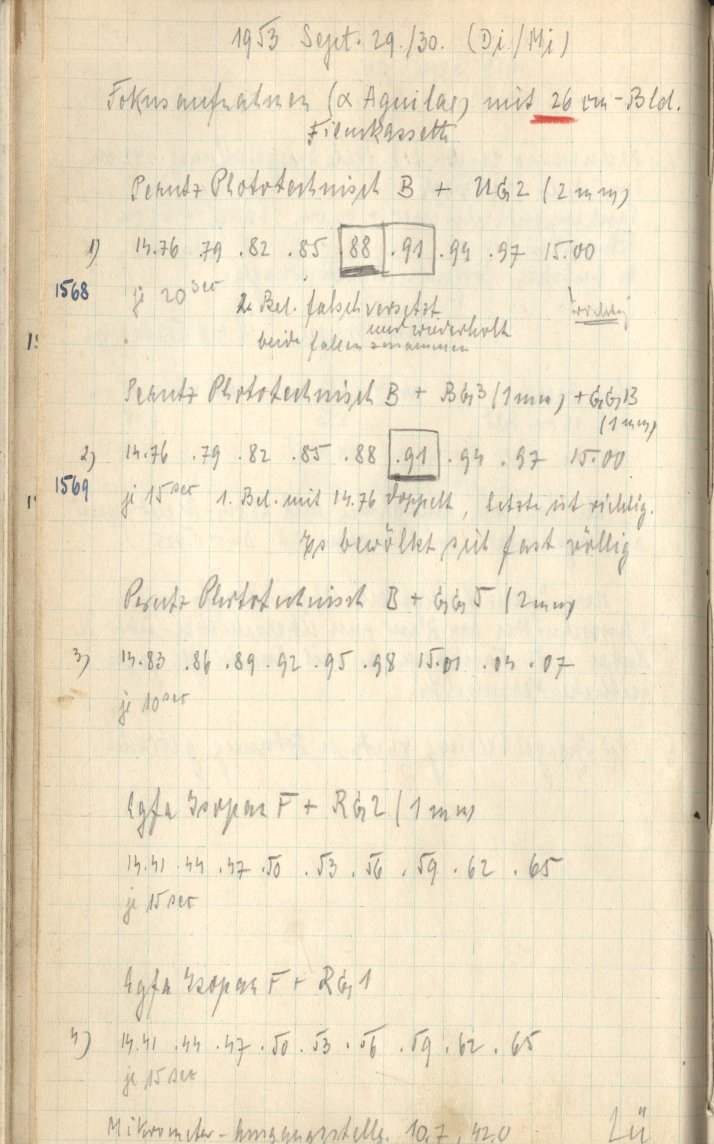 1953 Sept. 29./30. (Di./Mi)
Fokusaufnahmen (α Aquilae) mit 26 cm-Bld.
Filmkassette
Perutz Phototechnisch B + UG2 (2mm)
1) 14.76 .79 .82 .85 .88 .91 .94 .97 15.00
1568 je 20 sec 2. Bel. falsch versetzt
und wiederholt
beide fallen zusammen
Perutz Phototechnisch B + BG3 (1mm) + GG13
(1mm)
2) 14.76 .79 .82 .85 .88 .91 .94 .97 15.00
1569 je 15 sec 1. Bel. mit 14.76 doppelt, letzte ist richtig.
Es bewölkt seit fast völlig
Perutz Phototechnisch B + GG5 (2mm)
3) 14.83 .86 .89 .92 .95 .98 15.01 .04 .07
je 10 sec
Agfa Isopan F + RG2 (1mm
14.41 .44 .47 .50 .53 .56 .59 .62 .65
je 15 sec
Agfa Isopan F + RG1
4) 14.41 .44 .47 .50 .53 .56 .59 .62 .65
je 15 sec
Mikrometer-Ausgangsstellg. 10.7, 42.0 Lü